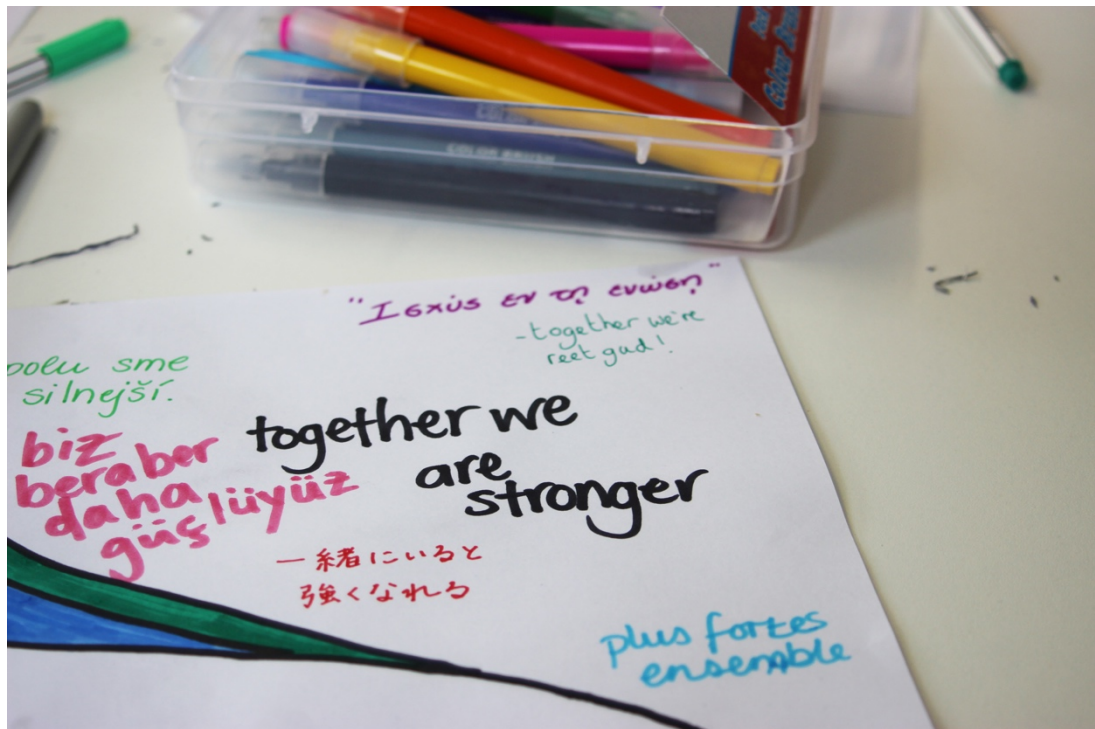 COLOR BRUSH
"Ισχύς εν τῃ ενώσῃ"
-together we're
reet gud!
polu sme
silnejší.
biz
beraber
daha
güçlüyüz
together we
are
stronger
一緒にいると
強くなれる
plus fortes
ensemble